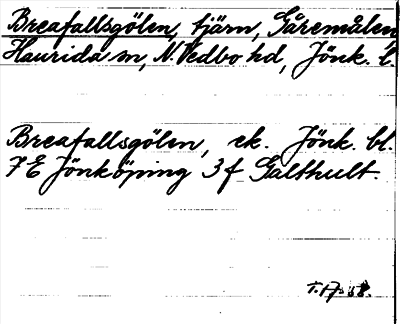 Breafallsgölen, tjärn, Gåremålen,
Haurida sn, N. Vedbo hd, Jönk. l.
Breafallsgölen, ek. Jönk. bl.
7 E Jönköping 3 f Galthult.